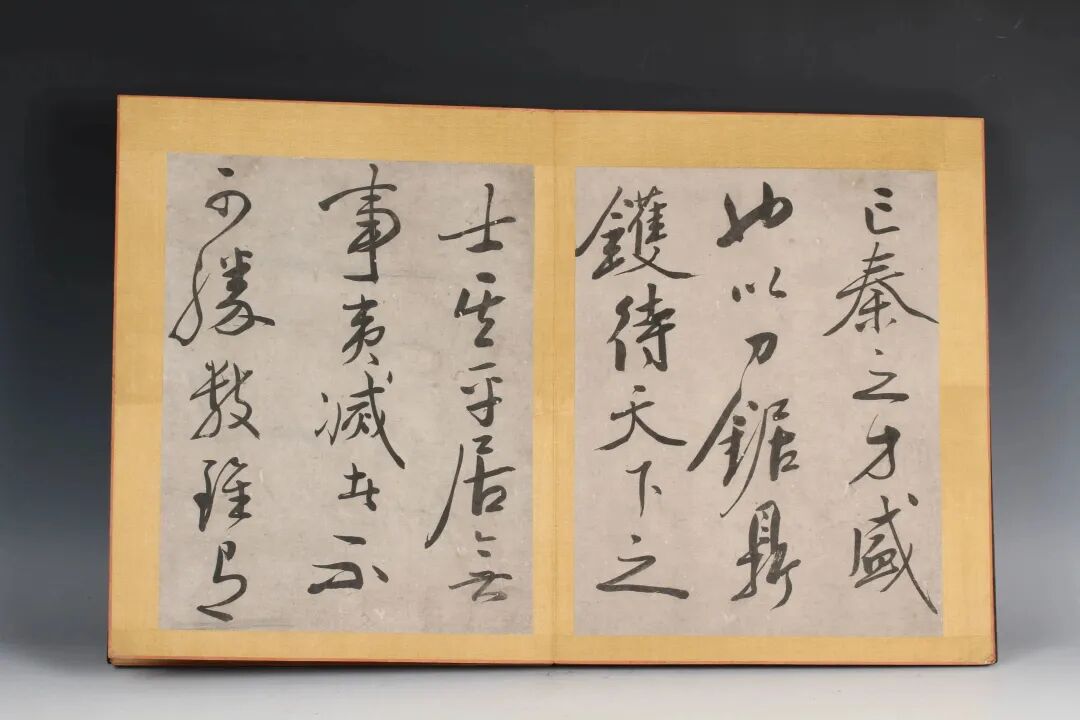 亡秦之方盛
也以刀鋸鼎
鑊待天下之
士其平居無
事夷滅者不
可勝數雖有